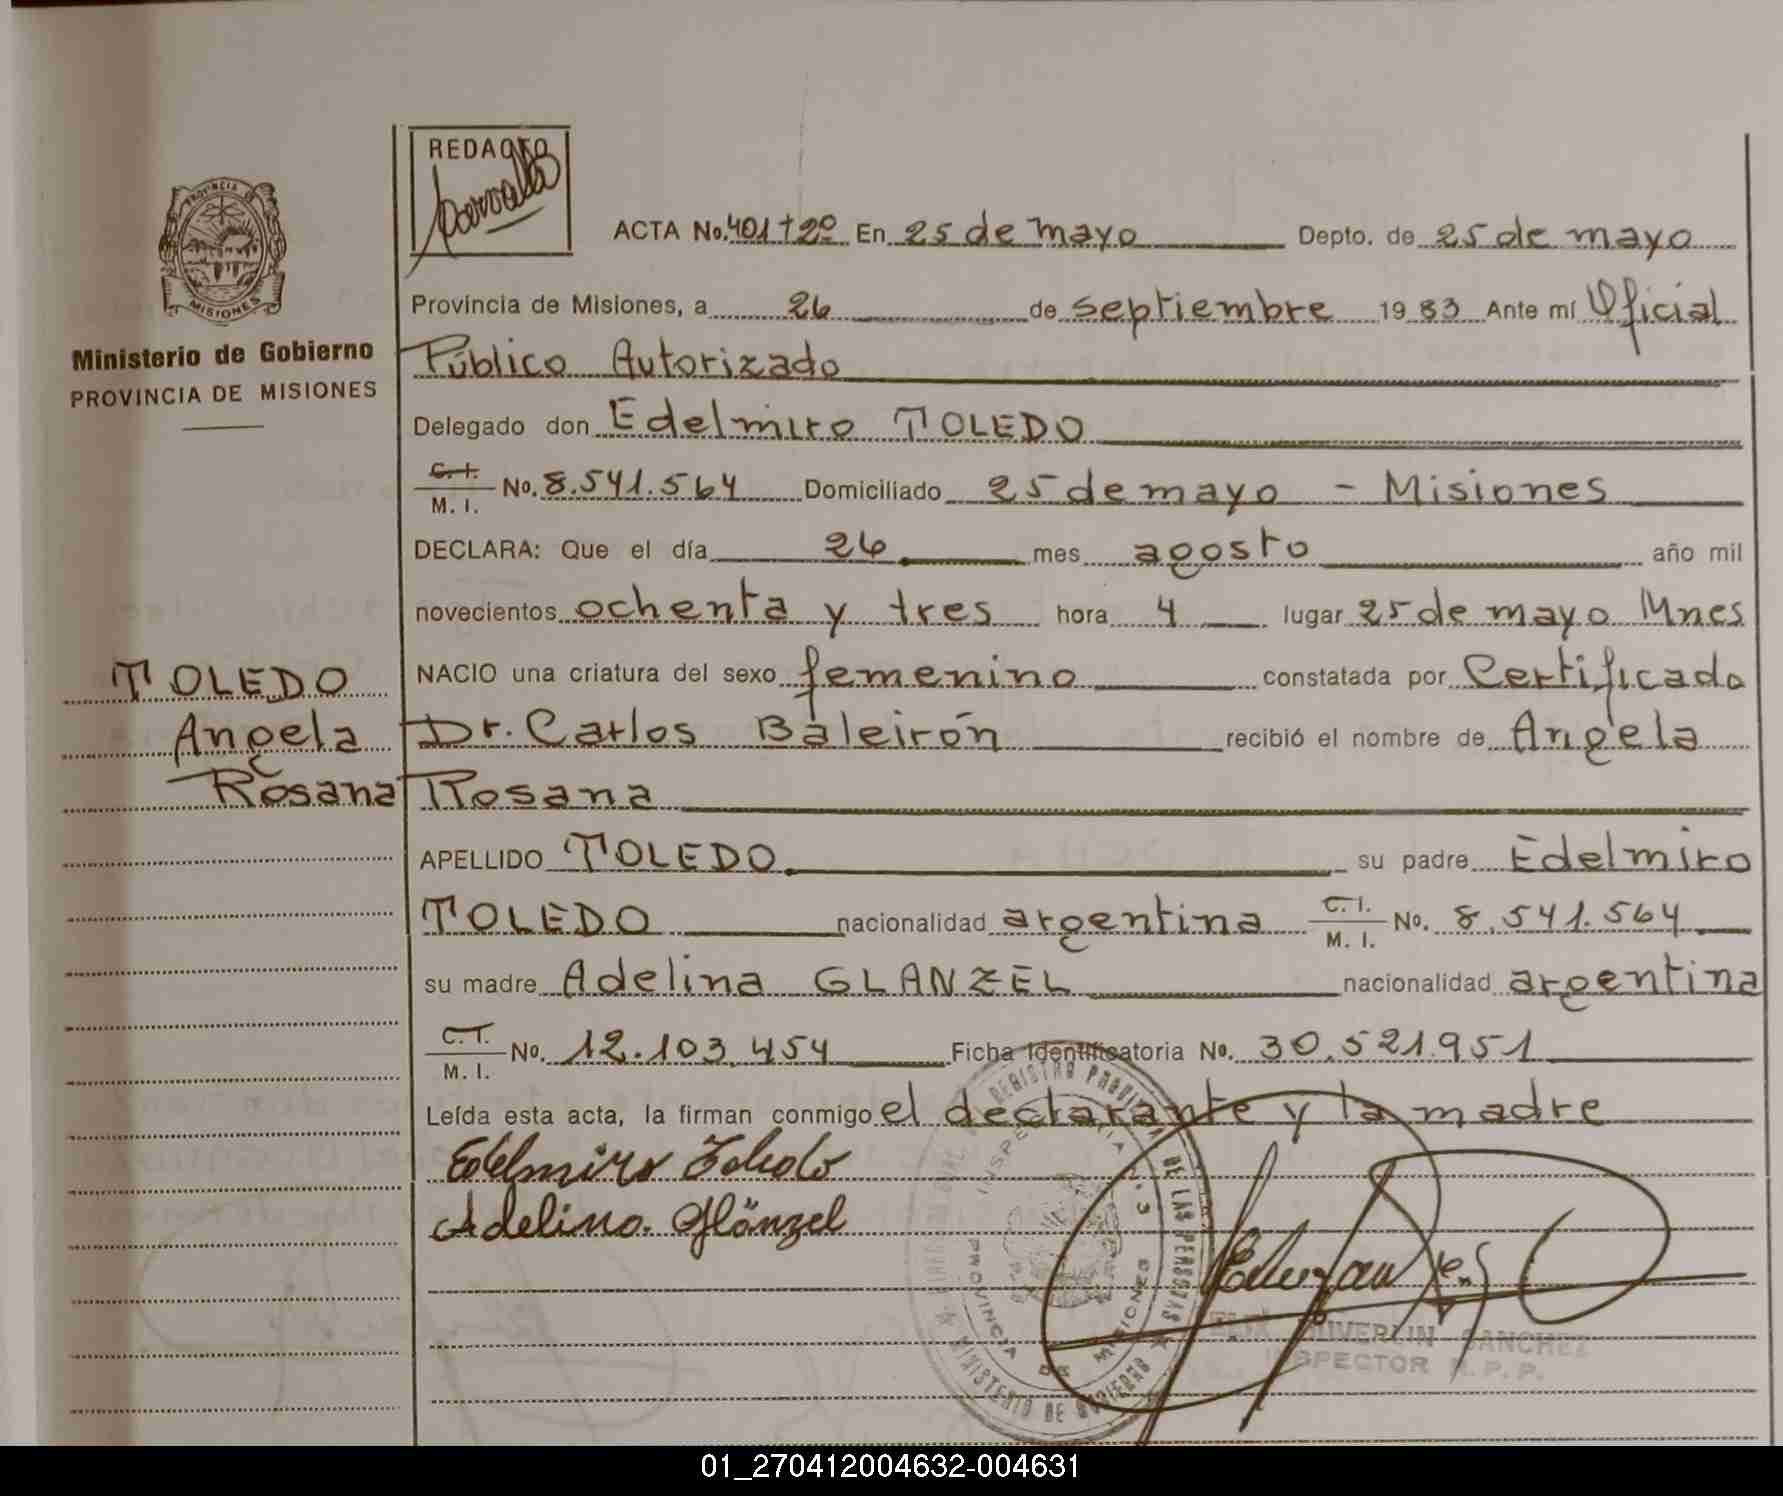 REDACTO
Carvallo
PROVINCIA DE
MISIONES
Ministerio de Gobierno
PROVINCIA DE MISIONES
ACTA No. 401 t 2º En 25 de mayo Depto. de 25 de mayo
Provincia de Misiones, a 26 de septiembre 1983 Ante mí Oficial
Público Autorizado
Delegado don Edelmiro TOLEDO
C. I.
M. I. No. 8.541.564 Domiciliado 25 de mayo - Misiones
DECLARA: Que el día 26 mes agosto año mil
novecientos ochenta y tres hora 4 lugar 25 de mayo Mnes
NACIO una criatura del sexo femenino constatada por Certificado
Dr. Carlos Baleirón recibió el nombre de Angela
Rosana
TOLEDO
Angela
Rosana
APELLIDO TOLEDO su padre Edelmiro
TOLEDO nacionalidad argentina C. I.
M. I. No. 8.541.564
su madre Adelina GLANZEL nacionalidad argentina
C. I.
M. I. No. 12.103.454 Ficha Identificatoria No. 30.521.951
Leída esta acta, la firman conmigo el declarante y la madre
Edelmiro Toledo
Adelina Glänzel
REGISTRO PROVINCIAL DE LAS PERSONAS
MINISTERIO DE GOBIERNO
PROVINCIA DE MISIONES
SANCHEZ
INSPECTOR R.P.P.
01_270412004632-004631